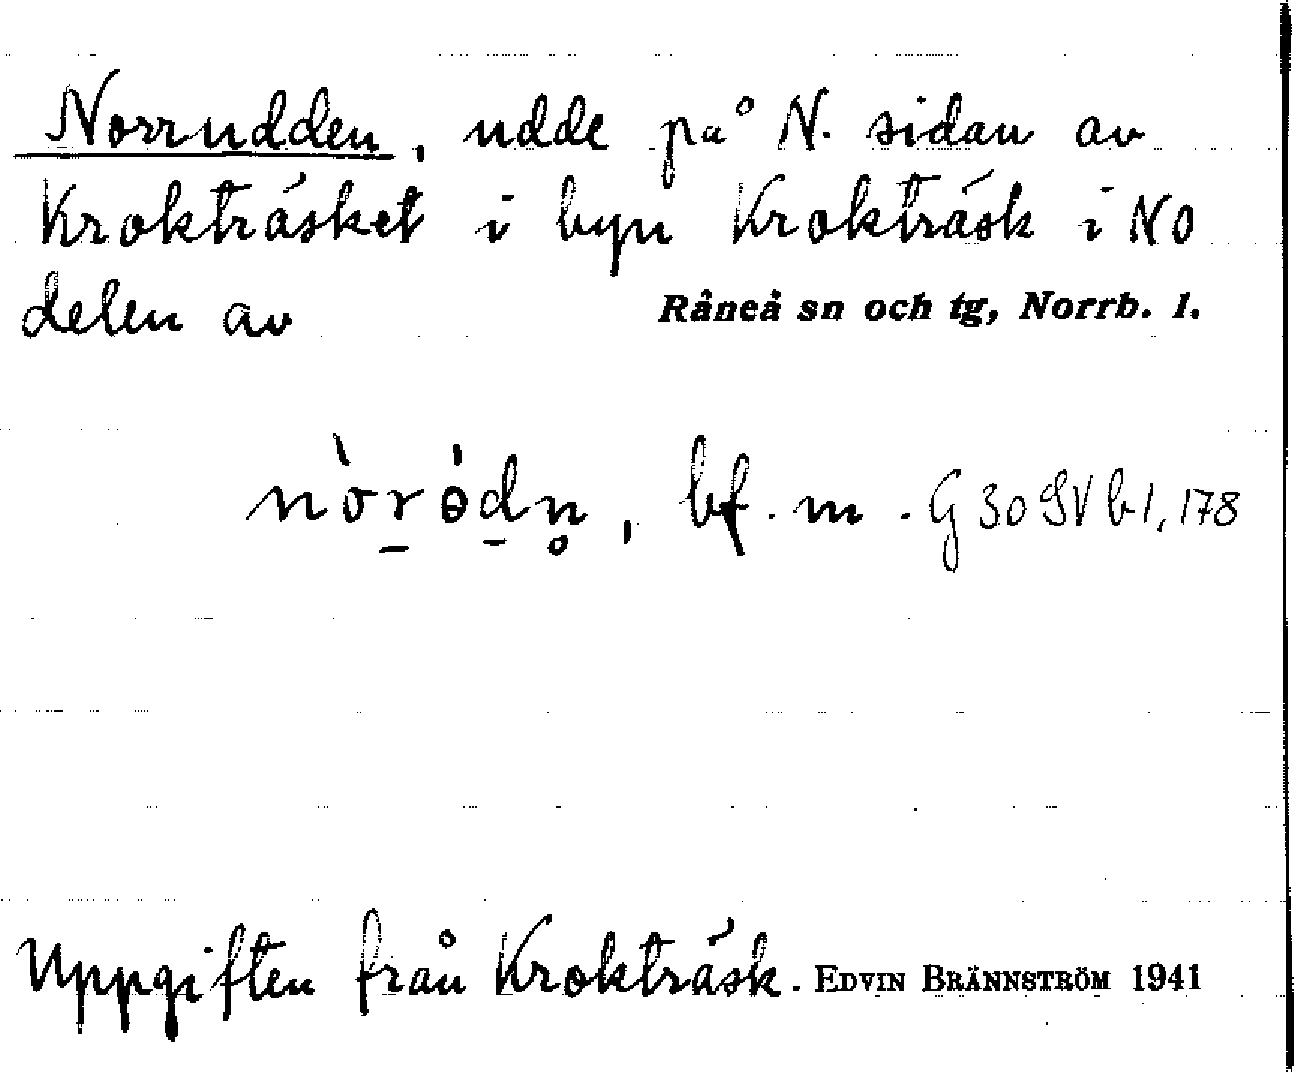 Norrudden, udde på N. sidan av
Krokträsket i byn Krokträsk i NO
delen av Råneå sn och tg, Norrb. l.
nòr̠ɵ̀d̠n̥, bf. m. G 30 SV b1, 178
Uppgiften från Krokträsk. EDVIN BRÄNNSTRÖM 1941